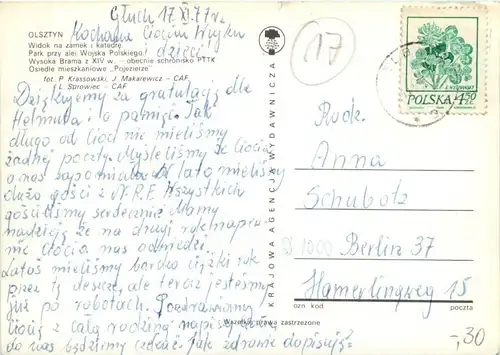 Głuch 17.XI.77r.
OLSZTYN
Kochana Ciociu Wujku
Widok na zamek i katedrę.
Park przy alei Wojska Polskiego.
dzieci
Wysoka Brama z XIV w. — obecnie schronisko PTTK
Osiedle mieszkaniowe „Pojezierze"
fot. P. Krassowski, J. Makarewicz — CAF
L. Surowiec — CAF
Dziękujemy za gratulację dla
Helmuta i o pamięć. Tak
długo od Cioci nie mieliśmy
żadnej poczty. Myśleliśmy że Ciocia
o nas zapomniała. W lato mieliśmy
dużo gości z N.R.F. Wszystkich
gościliśmy serdecznie. Mamy
nadzieję że na drugi rok napew-
nie Ciocia nas odwiedzi.
Latoś mieliśmy bardzo ciężki rok
przez te deszcze, ale teraz jesteśmy
już po robotach. Pozdrawiamy
Ciocię z całą rodziną napisz
do nas będziemy czekać. Jak zdrowie dopisuje?
Wszelkie prawa zastrzeżone
KRAJOWA AGENCJA WYDAWNICZA
17
POLSKA 4,50 ZŁ
Rodz.
Anna
Schubotz
D 1000 Berlin 37
Hamerlingweg 15
ozn kod
poczta
-,30